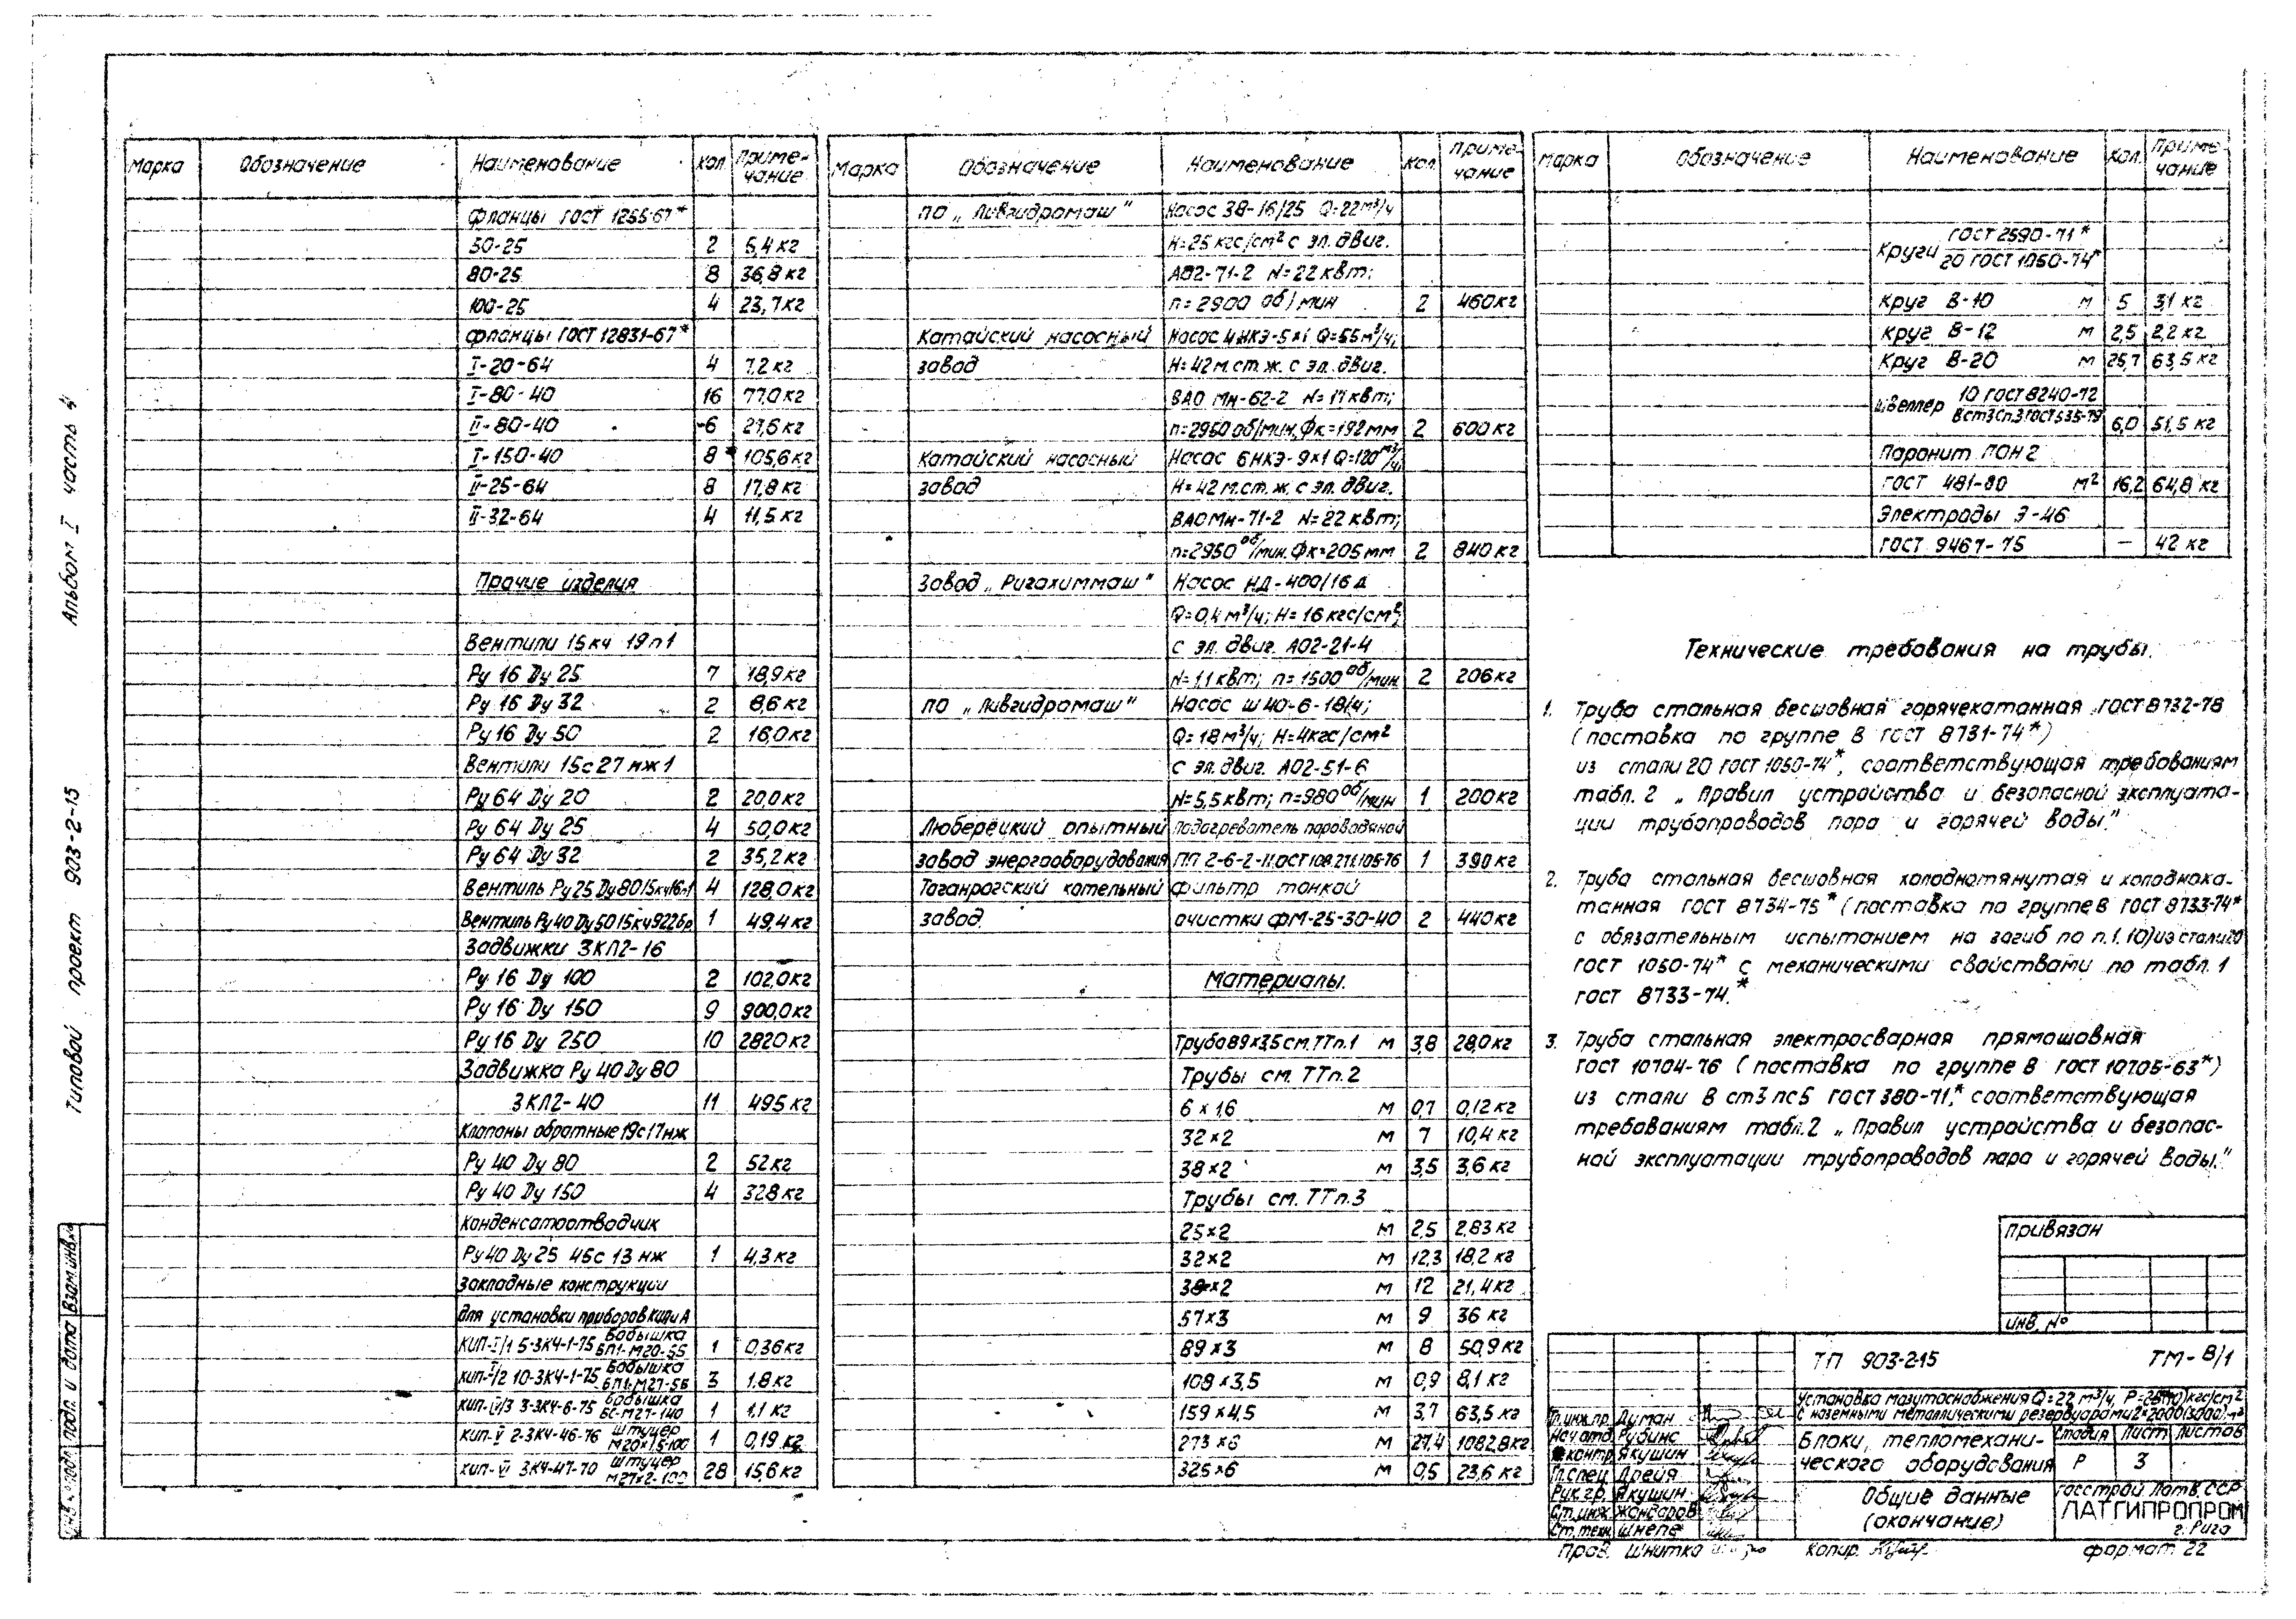 Марка Обозначение Наименование Кол. Примечание
Фланцы ГОСТ 1255-67*
50-25 2 5,4 кг
80-25 8 36,8 кг
100-25 4 23,7 кг
Фланцы ГОСТ 12831-67*
I-20-64 4 7,2 кг
I-80-40 16 77,0 кг
II-80-40 6 27,6 кг
I-150-40 8 105,6 кг
II-25-64 8 17,8 кг
II-32-64 4 11,5 кг
Прочие изделия
Вентили 15кч 19п1
Ру 16 Ду 25 7 18,9 кг
Ру 16 Ду 32 2 8,6 кг
Ру 16 Ду 50 2 16,0 кг
Вентили 15с27 нж1
Ру 64 Ду 20 2 20,0 кг
Ру 64 Ду 25 4 50,0 кг
Ру 64 Ду 32 2 35,2 кг
Вентиль Ру 25 Ду 80 15кч16п1 4 128,0 кг
Вентиль Ру 40 Ду 50 15кч922бр 1 49,4 кг
Задвижки ЗКЛ2-16
Ру 16 Ду 100 2 102,0 кг
Ру 16 Ду 150 9 900,0 кг
Ру 16 Ду 250 10 2820 кг
Задвижка Ру 40 Ду 80
ЗКЛ2-40 11 495 кг
Клапоны обратные 19с17нж
Ру 40 Ду 80 2 52 кг
Ру 40 Ду 150 4 328 кг
Конденсатоотводчик
Ру 40 Ду 25 45с 13 нж 1 4,3 кг
Закладные конструкции
для установки приборов КИП и А
КИП-I/1 5-ЗК4-1-75 Бобышка БП1-М20-55 1 0,36 кг
КИП-I/2 10-ЗК4-1-75 Бобышка БП1-М27-55 3 1.8 кг
КИП-IV/3 3-ЗК4-6-75 Бобышка БС-М27-140 1 1,1 кг
КИП-V 2-ЗК4-46-76 Штуцер М20×1,5-100 1 0,19 кг
КИП-VI ЗК4-47-70 Штуцер М27×2-100 28 15,6 кг
Марка Обозначение Наименование Кол. Примечание
ПО „Ливгидромаш" Насос 3В-16/25 Q=22м³/ч
Н=25 кгс/см² с эл. двиг.
АО2-71-2 N=22 квт;
n=2900 об/мин 2 460 кг
Катайский насосный Насос 4НКЭ-5×1 Q=55м³/ч;
завод Н=42м.ст.ж. с эл. двиг.
ВАО Мн-62-2 N=17квт;
n=2950 об/мин, Фк=192мм 2 600 кг
Катайский насосный Насос 6НКЭ-9×1 Q=120м³/ч;
завод Н=42м.ст.ж. с эл. двиг.
ВАО Мн-71-2 N=22 квт;
n=2950 об/мин. Фк=205мм 2 840 кг
Завод „Ригахиммаш" Насос НД-400/16 А
Q=0,4 м³/ч; Н=16 кгс/см²
с эл. двиг. АО2-21-4
N=1,1 квт; n=1500 об/мин 2 206 кг
ПО „Ливгидромаш" Насос Ш40-6-18/4;
Q=18м³/ч; Н=4кгс/см²
с эл. двиг. АО2-51-6
N=5,5 квт; n=980 об/мин 1 200 кг
Люберецкий опытный Подогреватель пароводяной
завод энергооборудования ПП 2-6-2-II ОСТ 108.271.105-76 1 390 кг
Таганрогский котельный Фильтр тонкой
завод. очистки ФМ-25-30-40 2 440 кг
Материалы.
Труба 89×3,5 см. ТТп.1 м 3,8 28,0 кг
Трубы см. ТТп.2
6×1,6 м 0,7 0,12 кг
32×2 м 7 10,4 кг
38×2 м 3,5 3,6 кг
Трубы см. ТТп.3
25×2 м 2,5 2,83 кг
32×2 м 12,3 18,2 кг
38×2 м 12 21,4 кг
57×3 м 9 36 кг
89×3 м 8 50,9 кг
108×3,5 м 0,9 8,1 кг
159×4,5 м 3,7 63,5 кг
273×6 м 27,4 1082,8 кг
325×6 м 0,5 23,6 кг
Марка Обозначение Наименование Кол. Примечание
Круги ГОСТ 2590-71* / 20 ГОСТ 1050-74*
Круг В-10 м 5 3,1 кг
Круг В-12 м 2,5 2,2 кг
Круг В-20 м 25,7 63,5 кг
Швеллер 10 ГОСТ 8240-72 / ВСт3Сп3 ГОСТ 535-79 6,0 51,5 кг
Паронит ПОН 2
ГОСТ 481-80 м² 16,2 64,8 кг
Электроды Э-46
ГОСТ 9467-75 — 42 кг
Технические требования на трубы.
1. Труба стальная бесшовная горячекатанная ГОСТ 8732-78
(поставка по группе В ГОСТ 8731-74*)
из стали 20 ГОСТ 1050-74*, соответствующая требованиям
табл. 2 „Правил устройства и безопасной эксплуата-
ции трубопроводов пара и горячей воды."
2. Труба стальная бесшовная холоднотянутая и холоднока-
танная ГОСТ 8734-75* (поставка по группе В ГОСТ 8733-74*
с обязательным испытанием на загиб по п.1.10) из стали 20
ГОСТ 1050-74* с механическими свойствами по табл. 1
ГОСТ 8733-74.*
3. Труба стальная электросварная прямошовная
ГОСТ 10704-76 (поставка по группе В ГОСТ 10705-63*)
из стали В ст3 пс5 ГОСТ 380-71,* соответствующая
требованиям табл.2 „Правил устройства и безопас-
ной эксплуатации трубопроводов пара и горячей воды."
Привязан
Инв. №
ТП 903-2-15 ТМ-8/1
Установка мазутоснабжения Q=22 м³/ч, Р= кгс/см²
с наземными металлическими резервуарами 2×2000(3000) м³
Гл.инж.пр. Думан
Нач.отд. Рубинс
контр. Якушин
Гл.спец. Дрейя
Рук.гр. Якушин
Ст.инж. Жандаров
Ст.техн. Шнепе
Блоки, тепломехани-
ческого оборудования
Стадия Лист Листов
Р 3
Общие данные
(окончание)
Госстрой Латв. ССР
ЛАТГИПРОПРОМ
г. Рига
Пров. Шнитка Копир. Формат 22
Типовой проект 903-2-15 Альбом I часть 4
подл. Подп. и дата Взам.инв.№